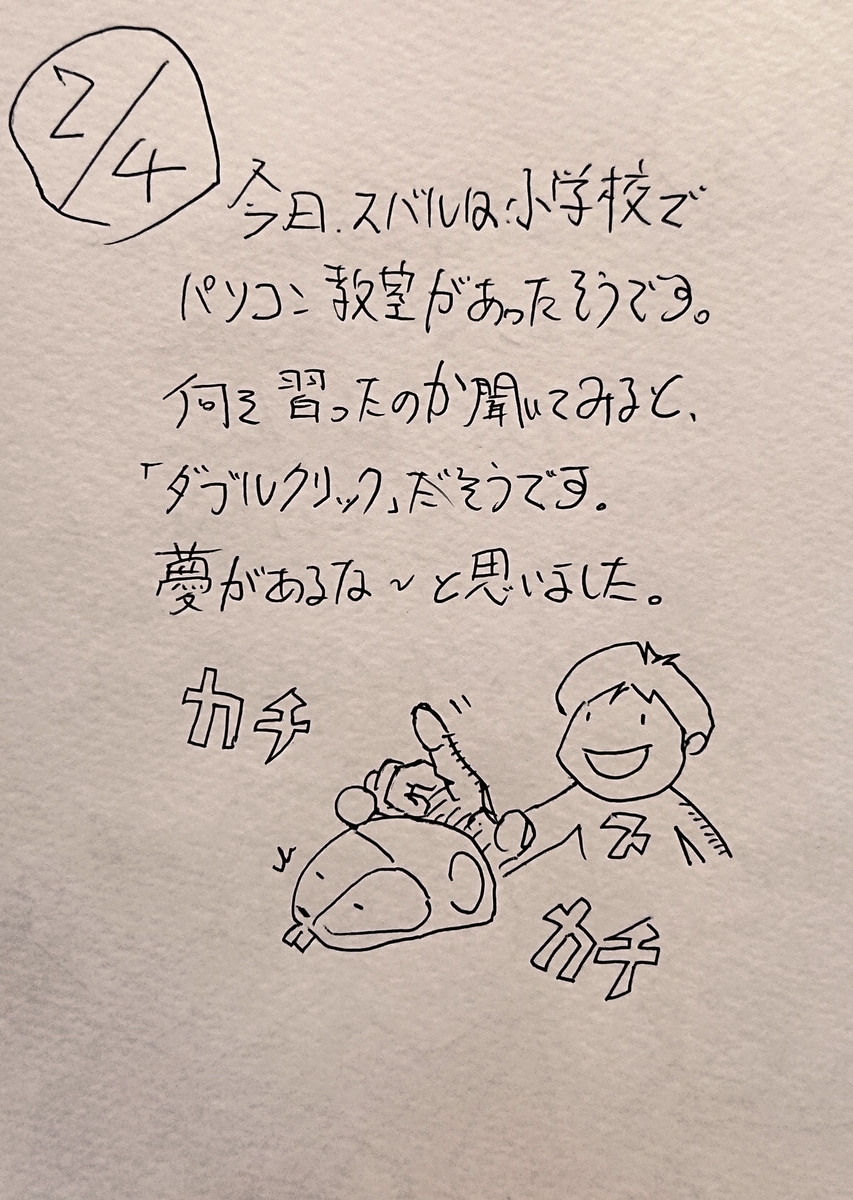 2/4
今日、スバルは小学校で
パソコン教室があったそうです。
何を習ったのか聞いてみると、
「ダブルクリック」だそうです。
夢があるな～と思いました。
カチ
ス
カチ